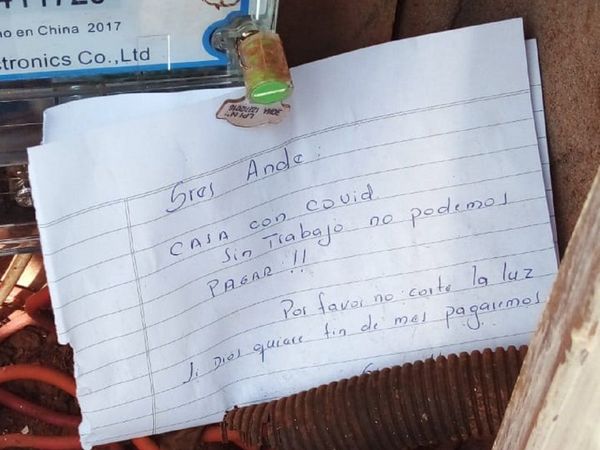 o en China 2017
ctronics Co.,Ltd
Sres Ande:
CASA con COVID
Sin Trabajo no podemos
PAGAR!!
Por favor no corte la luz
Si Dios quiere fin de mes pagaremos